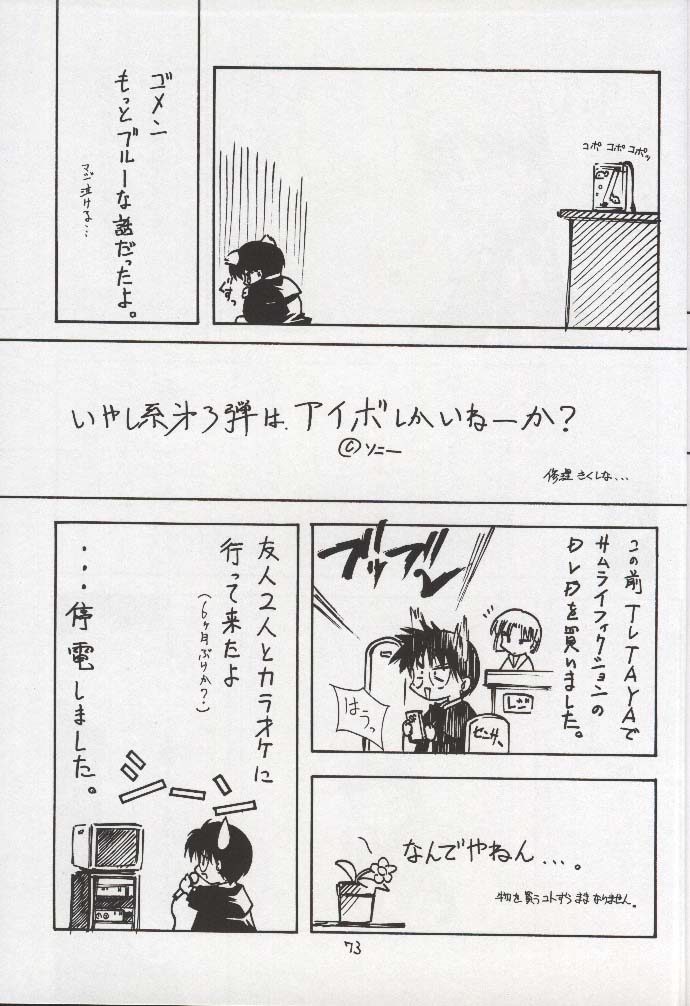 コポ コポ コポッ
ずっ
ゴメン
もっとブルーな話だったよ。
マジ泣ける…
いやし系第3弾は、アイボしかいねーか？
©ソニー
修理きくしな…
この前TUTAYAで
サムライフィクションの
DVDを買いました。
ブッブー
はうっ
レジ
センサ、
なんでやねん…。
物を買うコトすらままなりません。
友人2人とカラオケに
行って来たよ
（6ヶ月ぶりか？）
…停電しました。
73